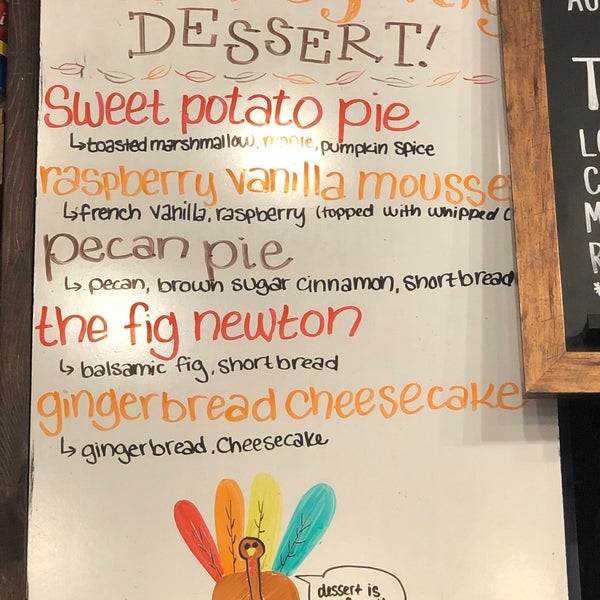 DESSERT!
sweet potato pie
↳toasted marshmallow, maple, pumpkin spice
raspberry vanilla mousse
↳french vanilla, raspberry (topped with whipped c
pecan pie
↳ pecan, brown sugar cinnamon, shortbread
the fig newton
↳ balsamic fig, shortbread
gingerbread cheesecake
↳ gingerbread, cheesecake
dessert is
AU
T
LO
C
M
R
*